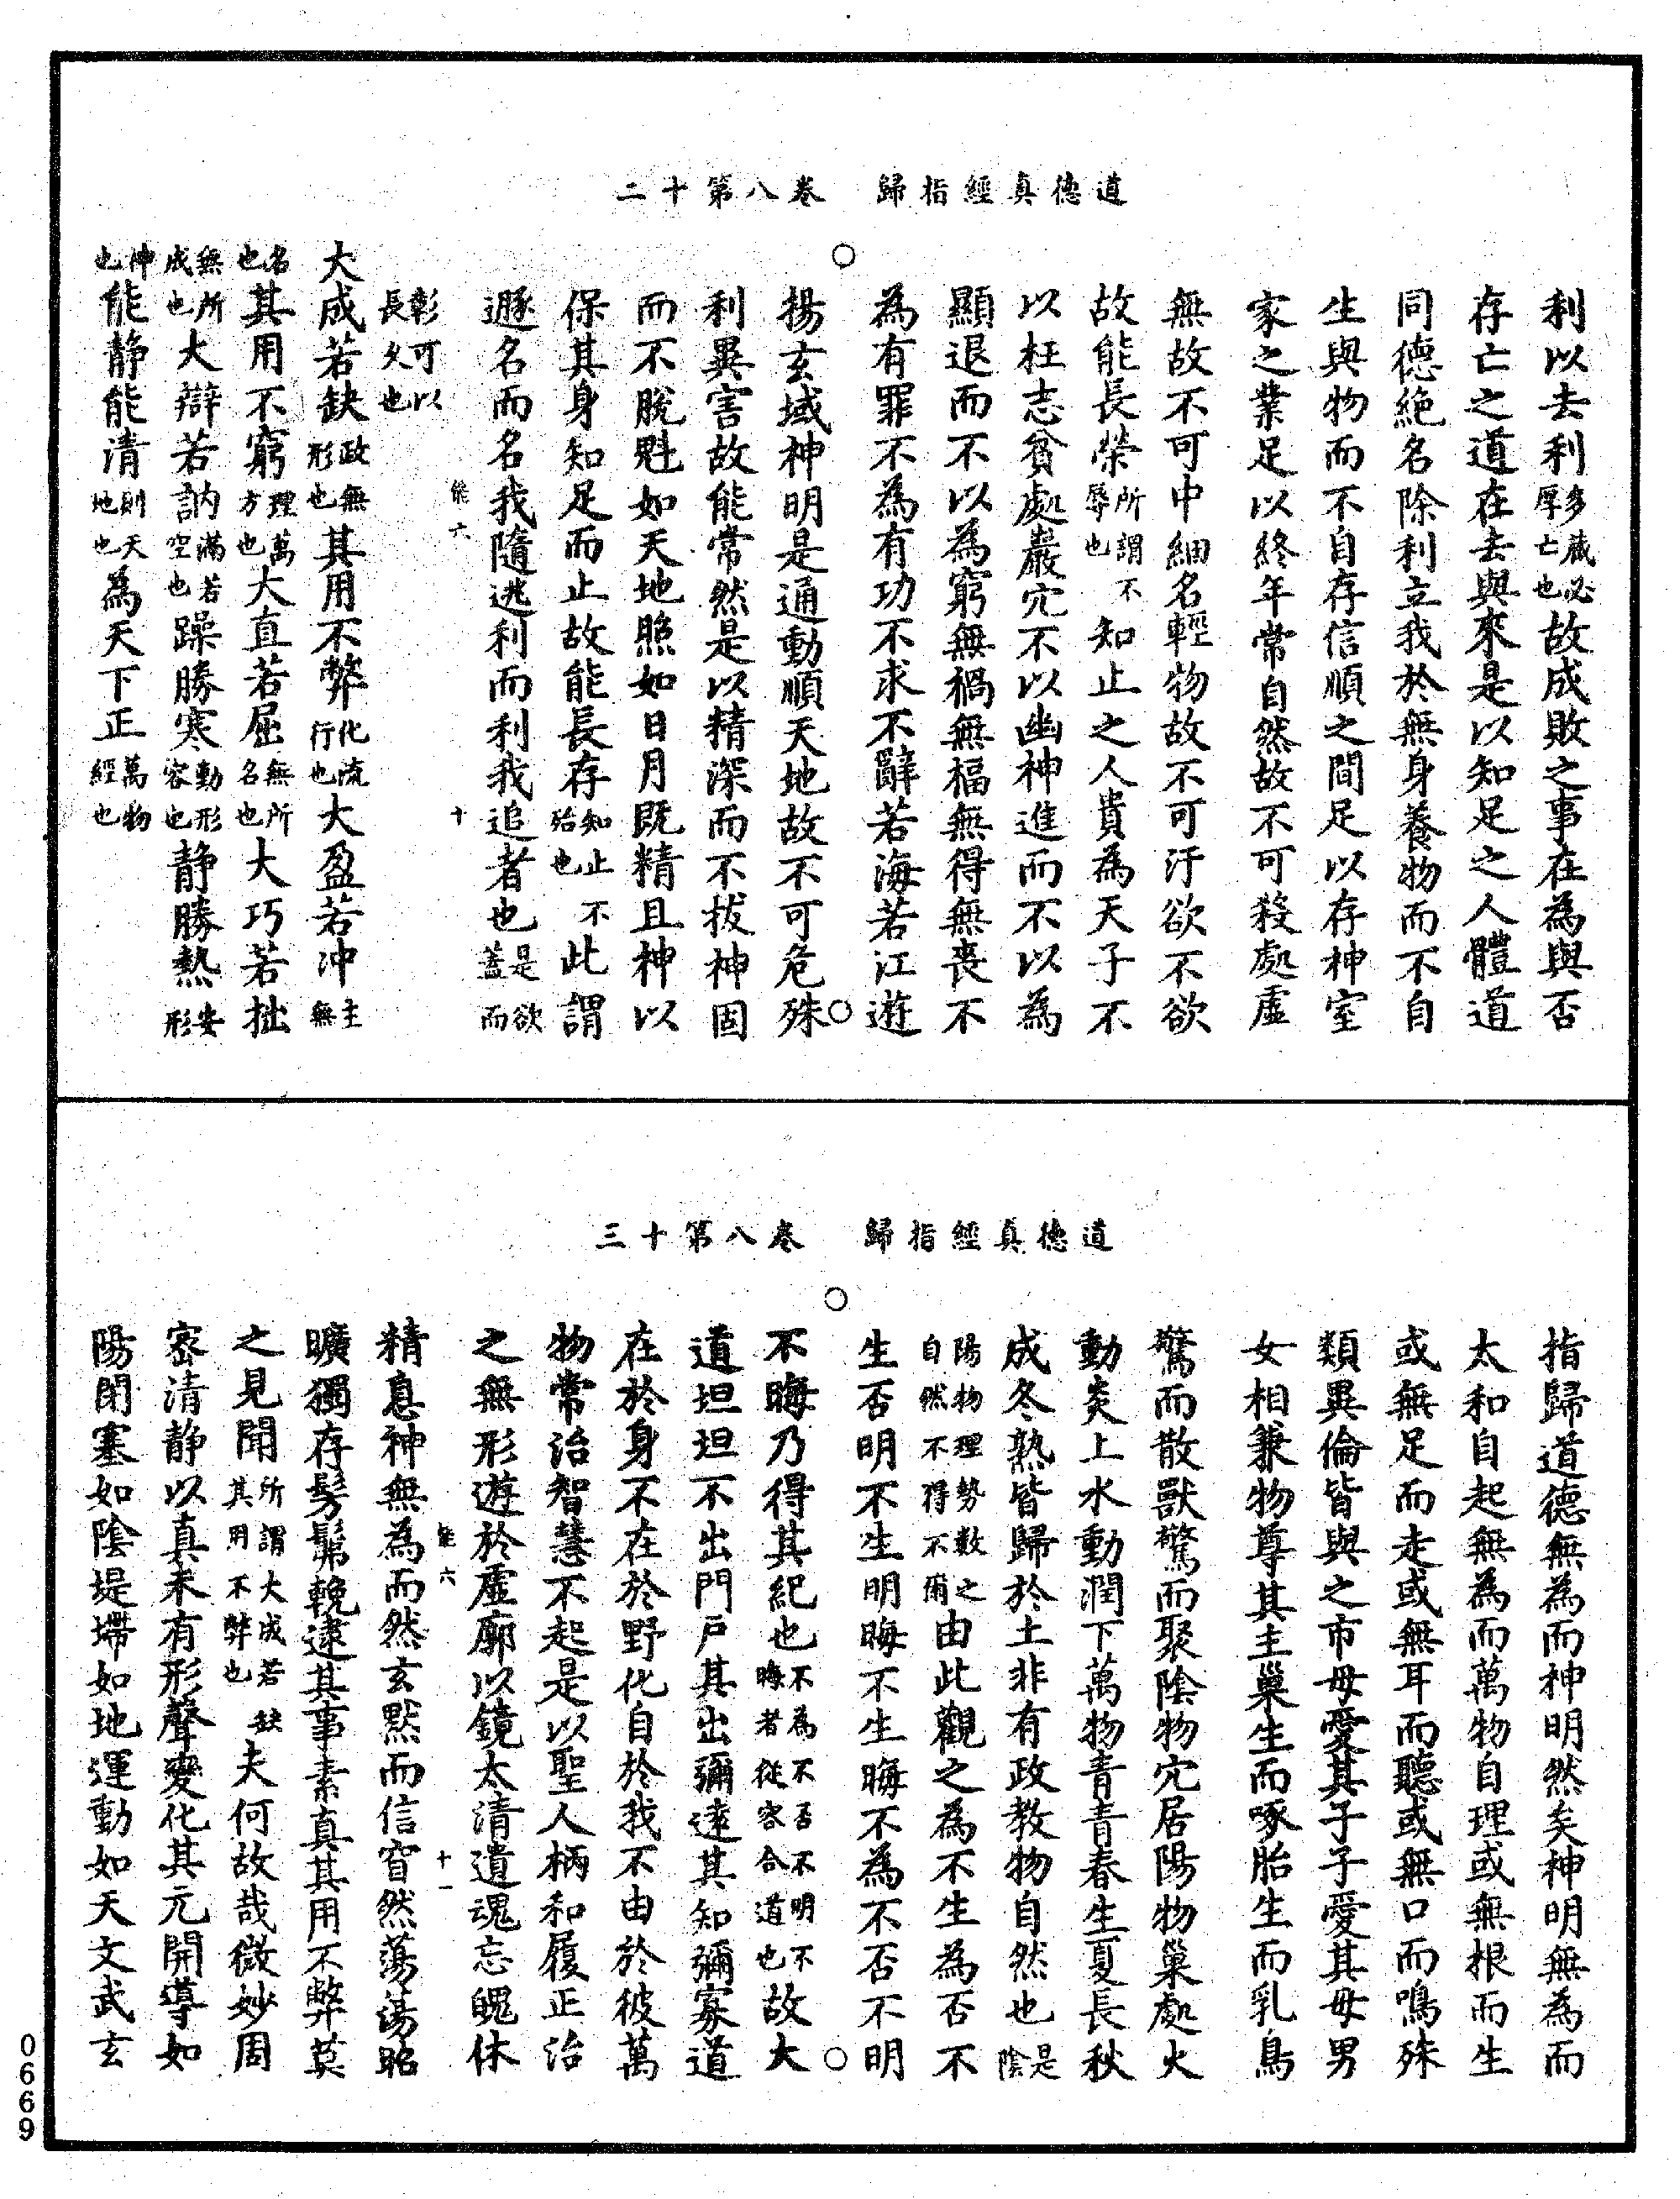 道德真經指歸　卷八第十二
利以去利多藏必厚亡也故成敗之事在為與否
存亡之道在去與來是以知足之人體道
同德絕名除利立我於無身養物而不自
生與物而不自存信順之間足以存神室
家之業足以終年常自然故不可殺處虛
無故不可中細名輕物故不可汙欲不欲
故能長榮所謂不辱也知止之人貴為天子不
以枉志貧處巖穴不以幽神進而不以為
顯退而不以為窮無禍無福無得無喪不
為有罪不為有功不求不辭若海若江遊
揚玄域神明是通動順天地故不可危殊
利異害故能常然是以精深而不拔神固
而不脫魁如天地照如日月既精且神以
保其身知足而止故能長存知止不殆也此謂
遯名而名我隨逃利而利我追者也是欲蓋而
能六　十
彰可以長久也
大成若缺政無形也其用不弊化流行也大盈若冲主無
名也其用不窮理萬方也大直若屈無所名也大巧若拙
無所成也大辯若訥滿若空也躁勝寒動形容也静勝熱安形
神也能静能清則天地也為天下正萬物經也
道德真經指歸　卷八第十三
指歸道德無為而神明然矣神明無為而
太和自起無為而萬物自理或無根而生
或無足而走或無耳而聽或無口而鳴殊
類異倫皆與之市母愛其子子愛其母男
女相兼物尊其主巢生而啄胎生而乳鳥
驚而散獸驚而聚陰物穴居陽物巢處火
動炎上水動潤下萬物青青春生夏長秋
成冬熟皆歸於土非有政教物自然也是陰
陽物理勢數之自然不得不爾由此觀之為不生為否不
生否明不生明晦不生晦不為不否不明
不晦乃得其紀也不為不否不明不晦者從容合道也故大
道坦坦不出門戶其出彌遠其知彌寡道
在於身不在於野化自於我不由於彼萬
物常治智慧不起是以聖人柄和履正治
之無形遊於虛廓以鏡太清遺魂忘魄休
能六　十一
精息神無為而然玄默而信窅然蕩蕩昭
曠獨存髣髴輓逮其事素真其用不弊莫
之見聞所謂大成若缺其用不弊也夫何故哉微妙周
密清静以真未有形聲變化其元開導如
陽閉塞如陰堤墆如地運動如天文武玄
0669